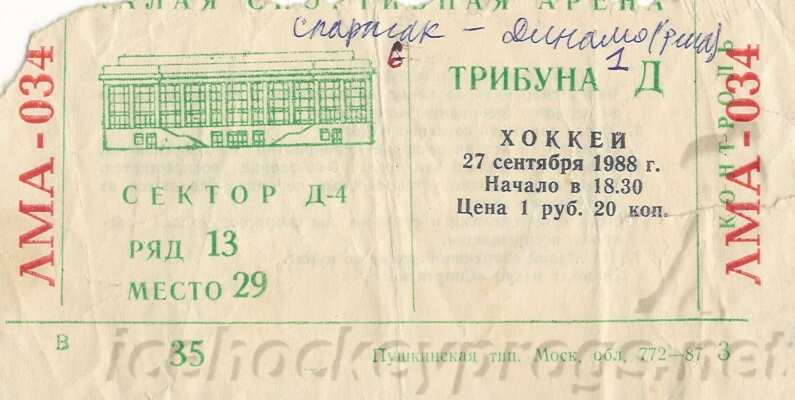 МАЛАЯ СПОРТИВНАЯ АРЕНА
Спартак – Динамо (Рига)
6 1
ТРИБУНА Д
ХОККЕЙ
27 сентября 1988 г.
Начало в 18.30
Цена 1 руб. 20 коп.
СЕКТОР Д-4
РЯД 13
МЕСТО 29
ЛМА-034
ЛМА-034
КОНТРОЛЬ
В 35 Пушкинская тип. Моск. обл. 772—87 3
icehockeyprogs.net